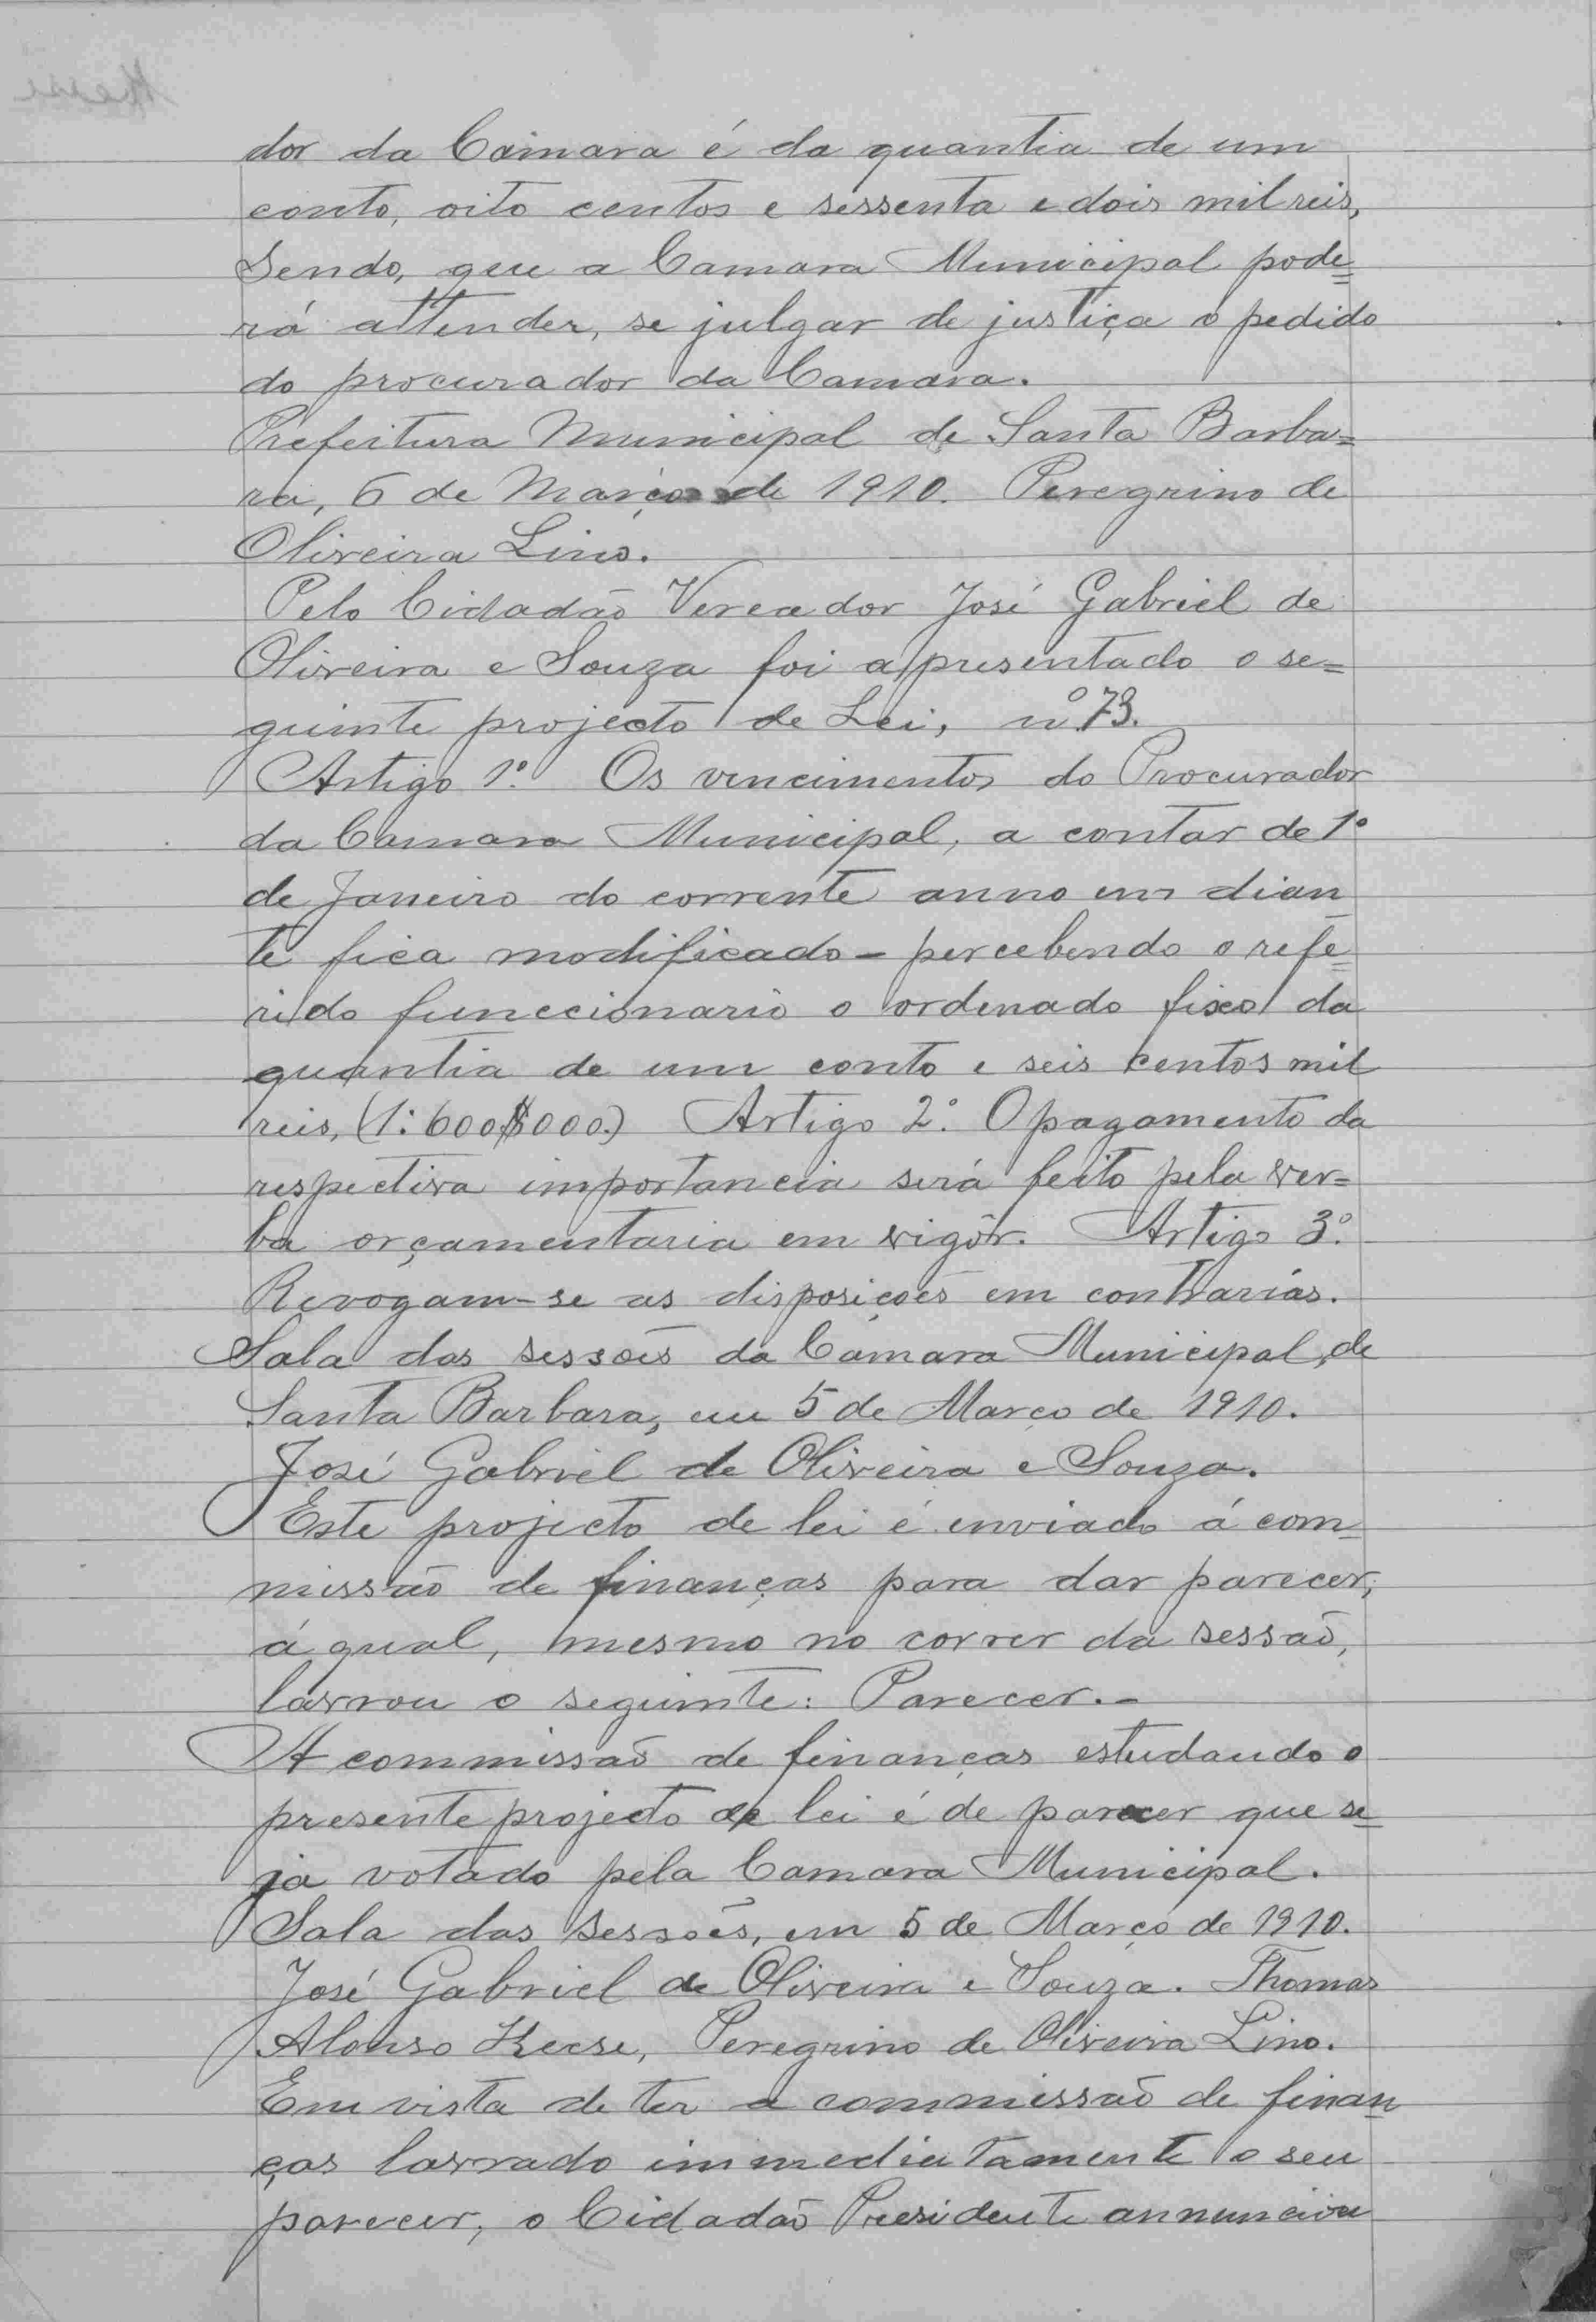 dor da Camara é da quantia de um
conto, oito centos e sessenta e dois mil reis,
Sendo, que a Camara Municipal pode=
rá attender, se julgar de justiça o pedido
do procurador da Camara.
Prefeitura Municipal de Santa Barba=
ra, 6 de Março de 1910. Peregrino de
Oliveira Lino.
Pelo Cidadão Vereador José Gabriel de
Oliveira e Souza foi apresentado o se=
guinte projecto de Lei, nº 73.
Artigo 1º. Os vencimentos do Procurador
da Camara Municipal, a contar de 1º
de Janeiro do corrente anno em dian
te fica modificado - percebendo o refe=
rido funccionario o ordenado fixo da
quantia de um conto e seis centos mil
reis, (1:600$000.) Artigo 2º. O pagamento da
respectiva importancia será feito pela ver=
ba orçamentaria em vigôr. Artigo 3º.
Revogam-se as disposições em contrarias.
Sala das sessões da Câmara Municipal, de
Santa Barbara, em 5 de Março de 1910.
José Gabriel de Oliveira e Souza.
Este projecto de lei é enviado á com=
missão de finanças para dar parecer,
á qual, mesmo no correr da sessão,
lavrou o seguinte: Parecer.-
A commissão de finanças estudando o
presente projecto de lei é de parecer que se=
ja votado pela Camara Municipal.
Sala das sessões, em 5 de Março de 1910.
José Gabriel de Oliveira e Souza. Thomas
Alonso Keese, Peregrino de Oliveira Lino.
Em vista de ter a commissão de finan=
ças lavrado immediatamente o seu
parecer, o Cidadão Presidente annunciou